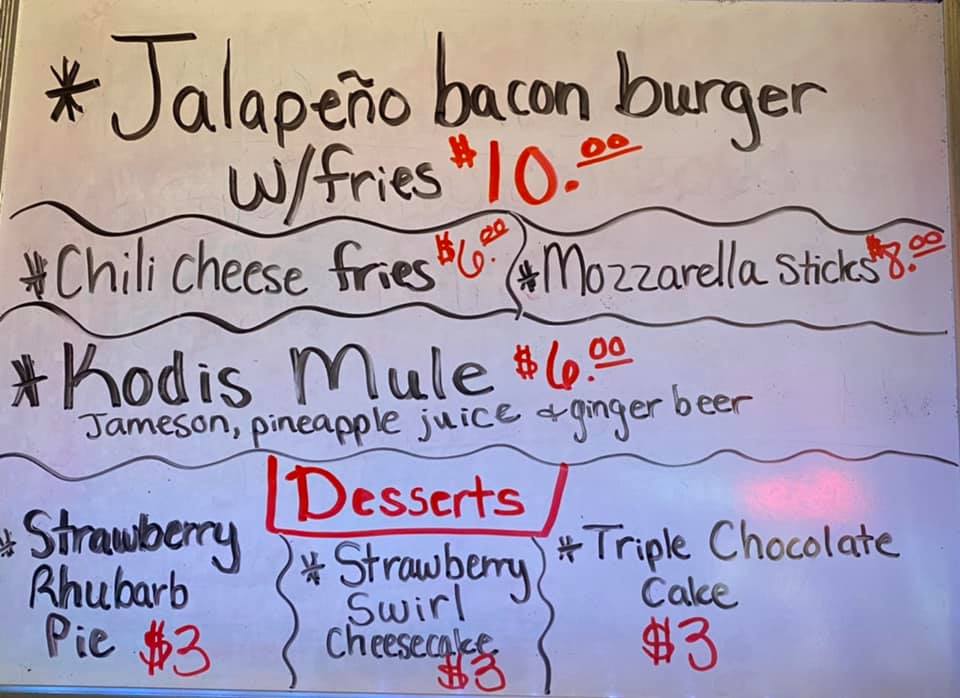 * Jalapeño bacon burger
w/fries $10.00
* Chili cheese fries $6.00
* Mozzarella sticks $8.00
* Kodis Mule $6.00
Jameson, pineapple juice & ginger beer
Desserts
* Strawberry
Rhubarb
Pie $3
* Strawberry
Swirl
Cheesecake
$3
* Triple Chocolate
Cake
$3